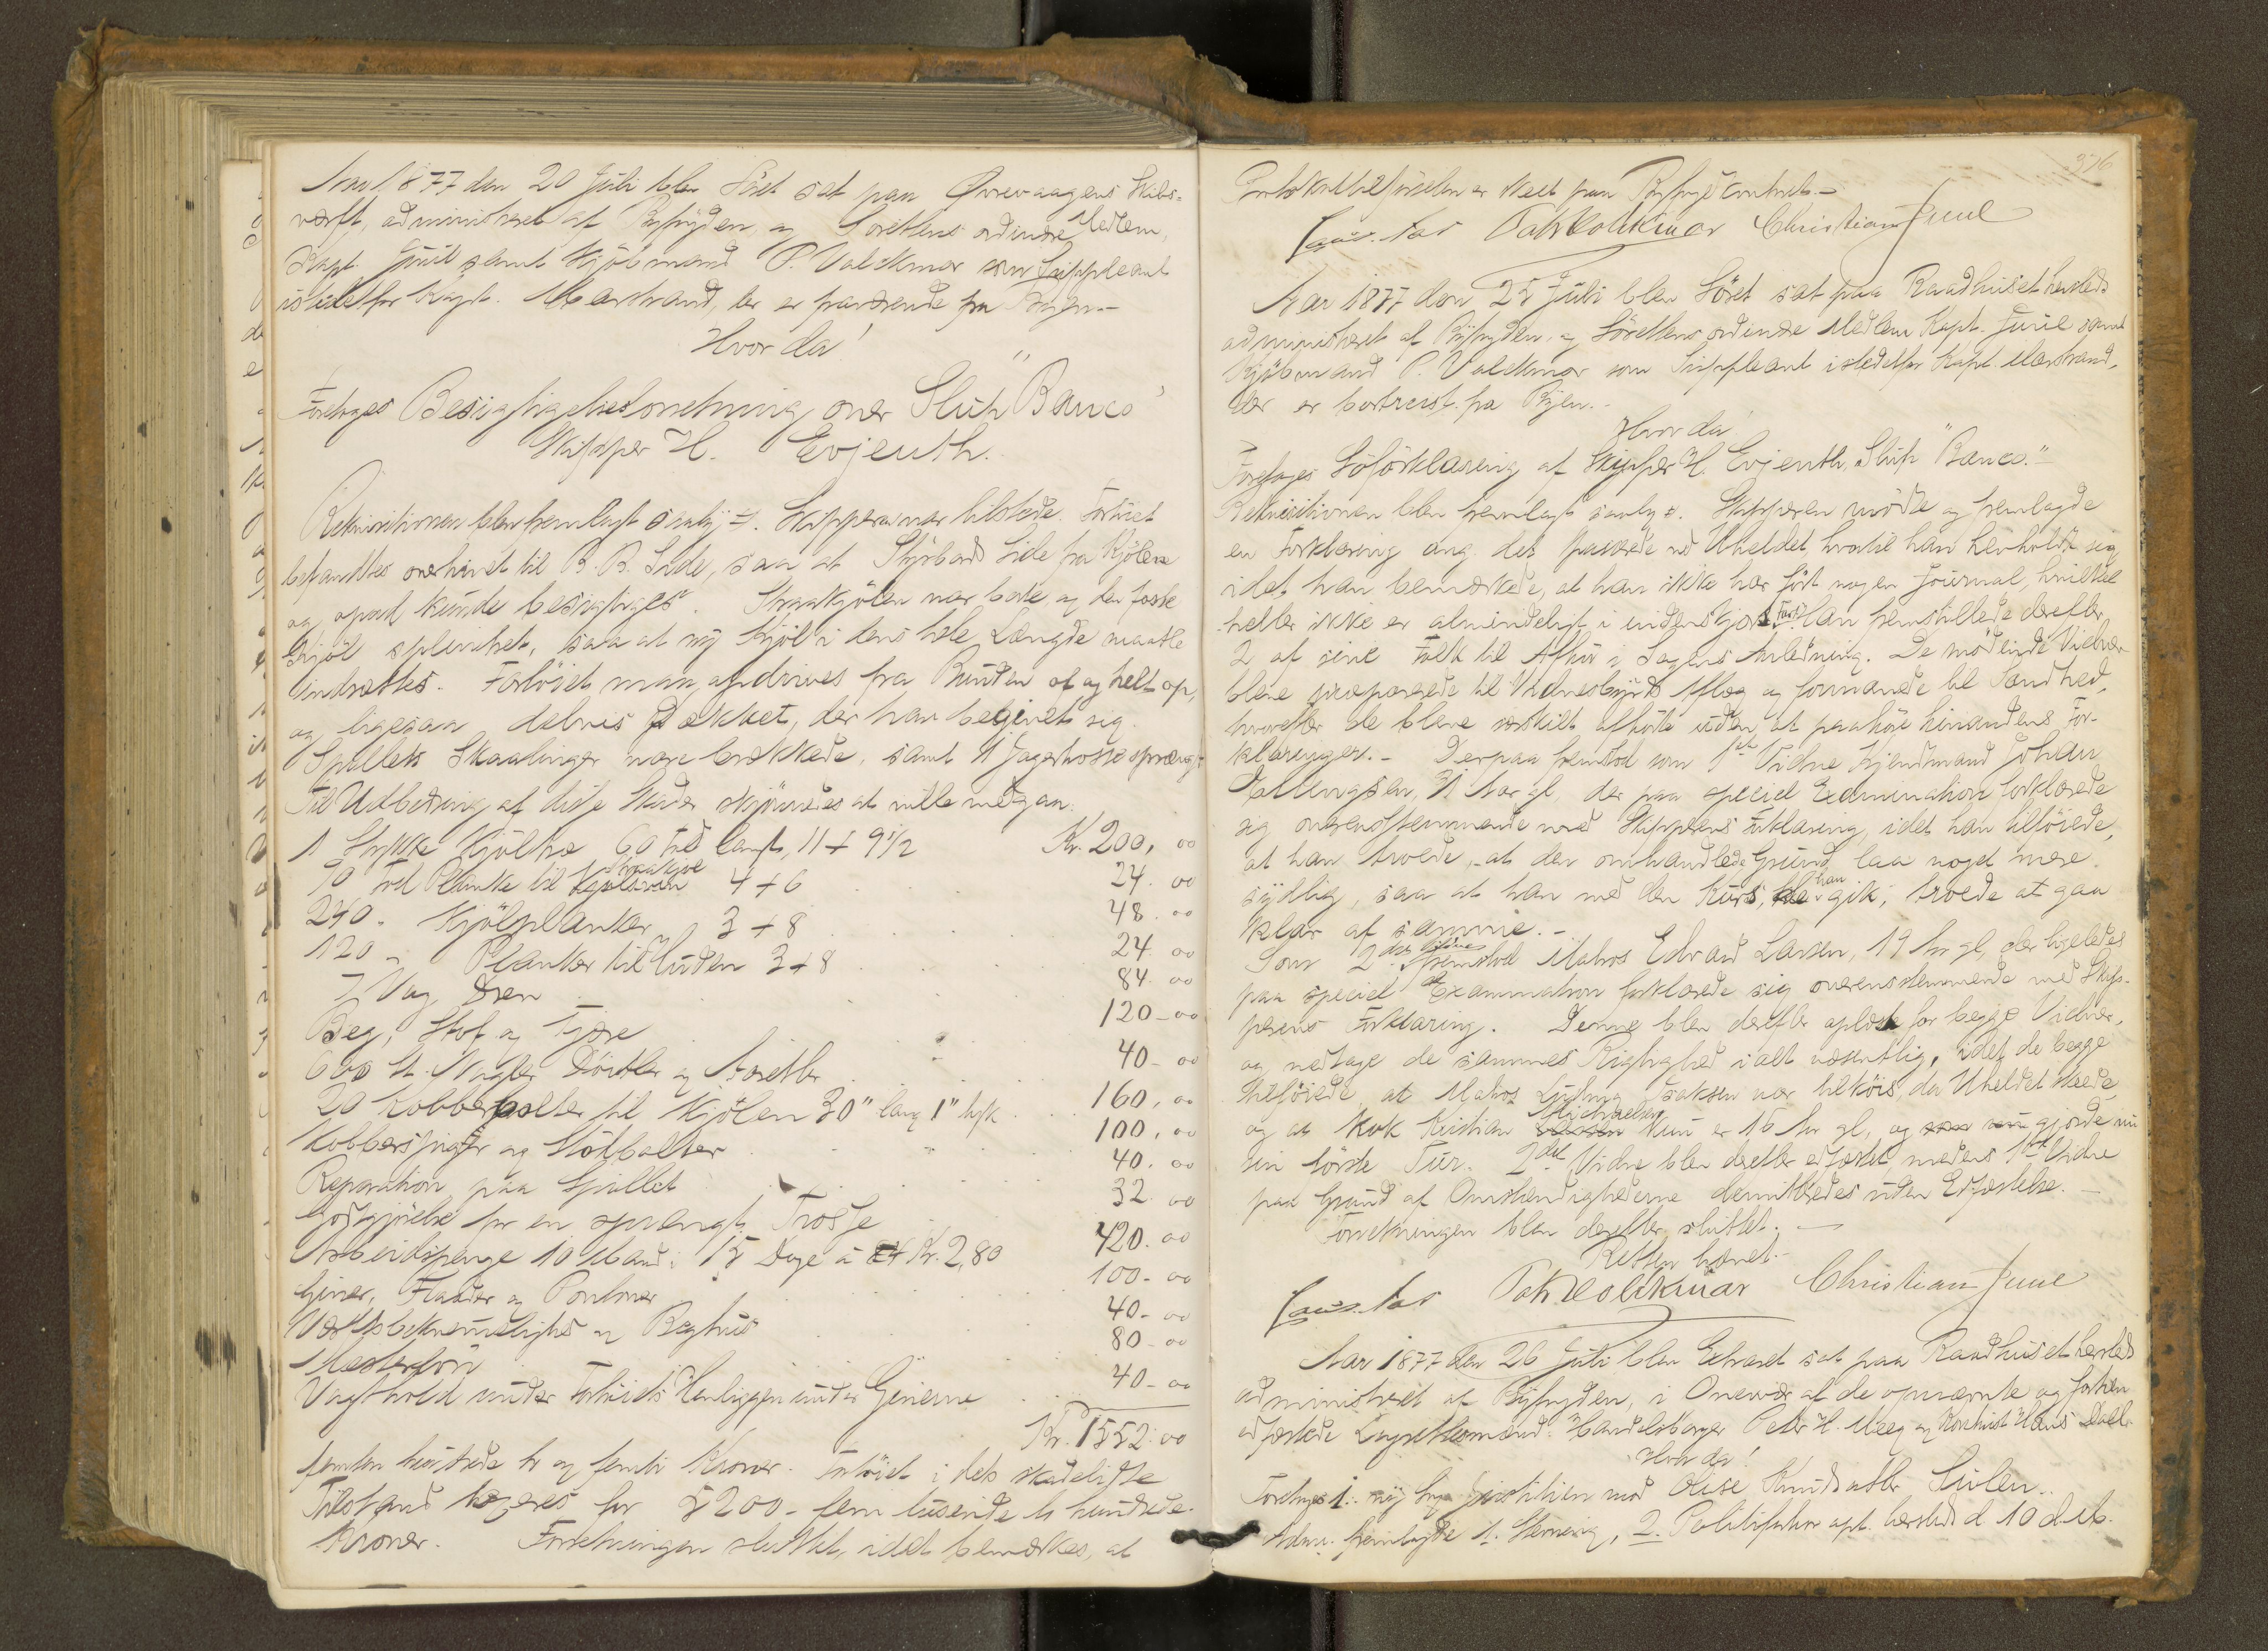 Aar 1877 den 20 Juli blev Söret sat paa Ørrevaagens Skibs-
værft, administreret af Byfogden, og Sörettens ordinære Medlem,
Kapt. Juul samt Kjöbmand P. Valckmar som Suppleant
istedetfor Kapt. Marstrand, der er fraværende fra Byen.-
Hvorda!
Foretoges Besigtigelsesforretning over Slup "Banco"
Skipper H. Evjenth.
Rekvisitionen blev fremlagt saalydende. Skipperen var tilstede. Fartöiet
befandtes overhalet til B.B. Side, saa at Styrbords Side fra Kjölen
og opad kunde besigtiges. Straakjölen var borte, og den faste
Kjöl splintret, saa at ny Kjöl i dens hele Længde maatte
indsættes. Fartöiet maa opdrives fra Bunden af og helt op,
og ligesaa delvis Dækket, der har begivet sig.
Spillets Skaalinger vare brækkede, samt 1 Jagertrosse sprængt
Til Udbedring af disse Skader skjönnedes at ville medgaa:
1 Stykke Kjöltræ 60 Fod langt, 11 + 9 1/2 Kr. 200, 00
70 Fod Planke til Straakjöl 4 + 6 24. 00
240 " Kjölplanker 3 + 8 48. 00
120 " Planker til Huden 3 + 8 24. 00
7 Vog Drev 84. 00
Beg, Stof og Tjære 120-00
600 St. Nagler Döitler og Aaretler 40-00
20 Kobberbolter til Kjölen 30" lang 1" tyk 160, 00
Kobberspiger og Stötbolter 100, 00
Reparation paa Spillet 40, 00
Godtgjörelse for en sprængt Trosse 32. 00
Arbeidspenge 10 Mand i 15 Dage à Kr. 2,80 420. 00
Giner, Flaader og Pontoner 100- 00
Værftsbekvemmelighed og Beghus 40- 00
Mesterlön 80- 00
Vagthold under Fartöiets Henliggen under Ginerne 40- 00
Kr. 1552. 00
femten hundrede to og femti Kroner. Fartöiet i dets skadelidte
Tilstand taxeres for 5200 - fem tusinde to hundrede
Kroner. Forretningen sluttet, idet bemærkes, at
376
Protokoltilförselen er skeet paa Byfogdkontoret.-
Patr Volckmar Christian Juul
Aar 1877 den 25 Juli blev Söret sat paa Raadhuset hersteds
administreret af Byfogden, og Sörettens ordinære Medlem Kapt. Juul samt
Kjöbmand P. Valckmar som Suppleant istedetfor Kapt. Marstrand,
der er bortreist fra Byen.-
Hvorda!
Foretoges Söforklaring af Skipper H. Evjenth, Slup "Banco."
Rekvisitionen blev fremlagt saalydende. Skipperen mödte og fremlagde
en Forklaring ang. det passerede ved Uheldet, hvortil han henholdt sig
idet han bemærkede, at han ikke har fört nogen Journal, hvilket
heller ikke er almindeligt i indenskjærs Fart. Han fremstillede derefter
2 af sine Folk til Afhör i Sagens Anledning. De mödende Vidner
bleve præparerede til Vidnesbyrds Aflæg og formanede til Sandhed,
hvorefter de bleve særskilt afhörte uden at paahöre hinandens For-
klaringer.- Derpaa fremstod som 1ste Vidne Kjendtmand Johan
Ellingsen, 31 Aar gl, der paa speciel Examination forklarede
sig overensstemmende med Skipperens Forklaring, idet han tilföiede,
at han troede, at den omhandlede Grund laa noget mere
sydlig, saa at han med den Kurs, han gik, troede at gaa
klar af samme.-
Som 2det Vidne fremstod Matros Edvard Larsen, 19 Aar gl, der ligeledes
paa speciel Examination forklarede sig overensstemmende med Skip-
perens Forklaring. Denne blev derefter oplæst for begge Vidner,
og vedtoge de sammes Rigtighed i alt væsentlig, idet de begge
tilföiede, at Matros Ludvig Isaksen var tilköis, da Uheldet skede,
og at Kok Kristian Michaelsen kun er 16 Aar gl, og gjorde nu
sin förste Tur. 2det Vidne blev derefter edfæstet, medens 1ste Vidne
paa Grund af Omstændighederne demitteredes uden Edfæstelse.-
Forretningen blev derefter sluttet.-
Retten hævet.-
Patr Volckmar Christian Juul
Aar 1877 den 26 Juli blev Extraret sat paa Raadhuset hersteds
administreret af Byfogden, i Overvær af de opnævnte og forhen
edfæstede Lagrettesmænd: Handelsborger Peter H. Meeg og Hans Dall.
Hvorda!
Foretoges 1: ny Sag Justitien mod Elise Knudsdatter Sivlen.-
Adm. fremlagde 1. Stevning, 2. Politiforhör opt. hersteds d. 10 d.M.